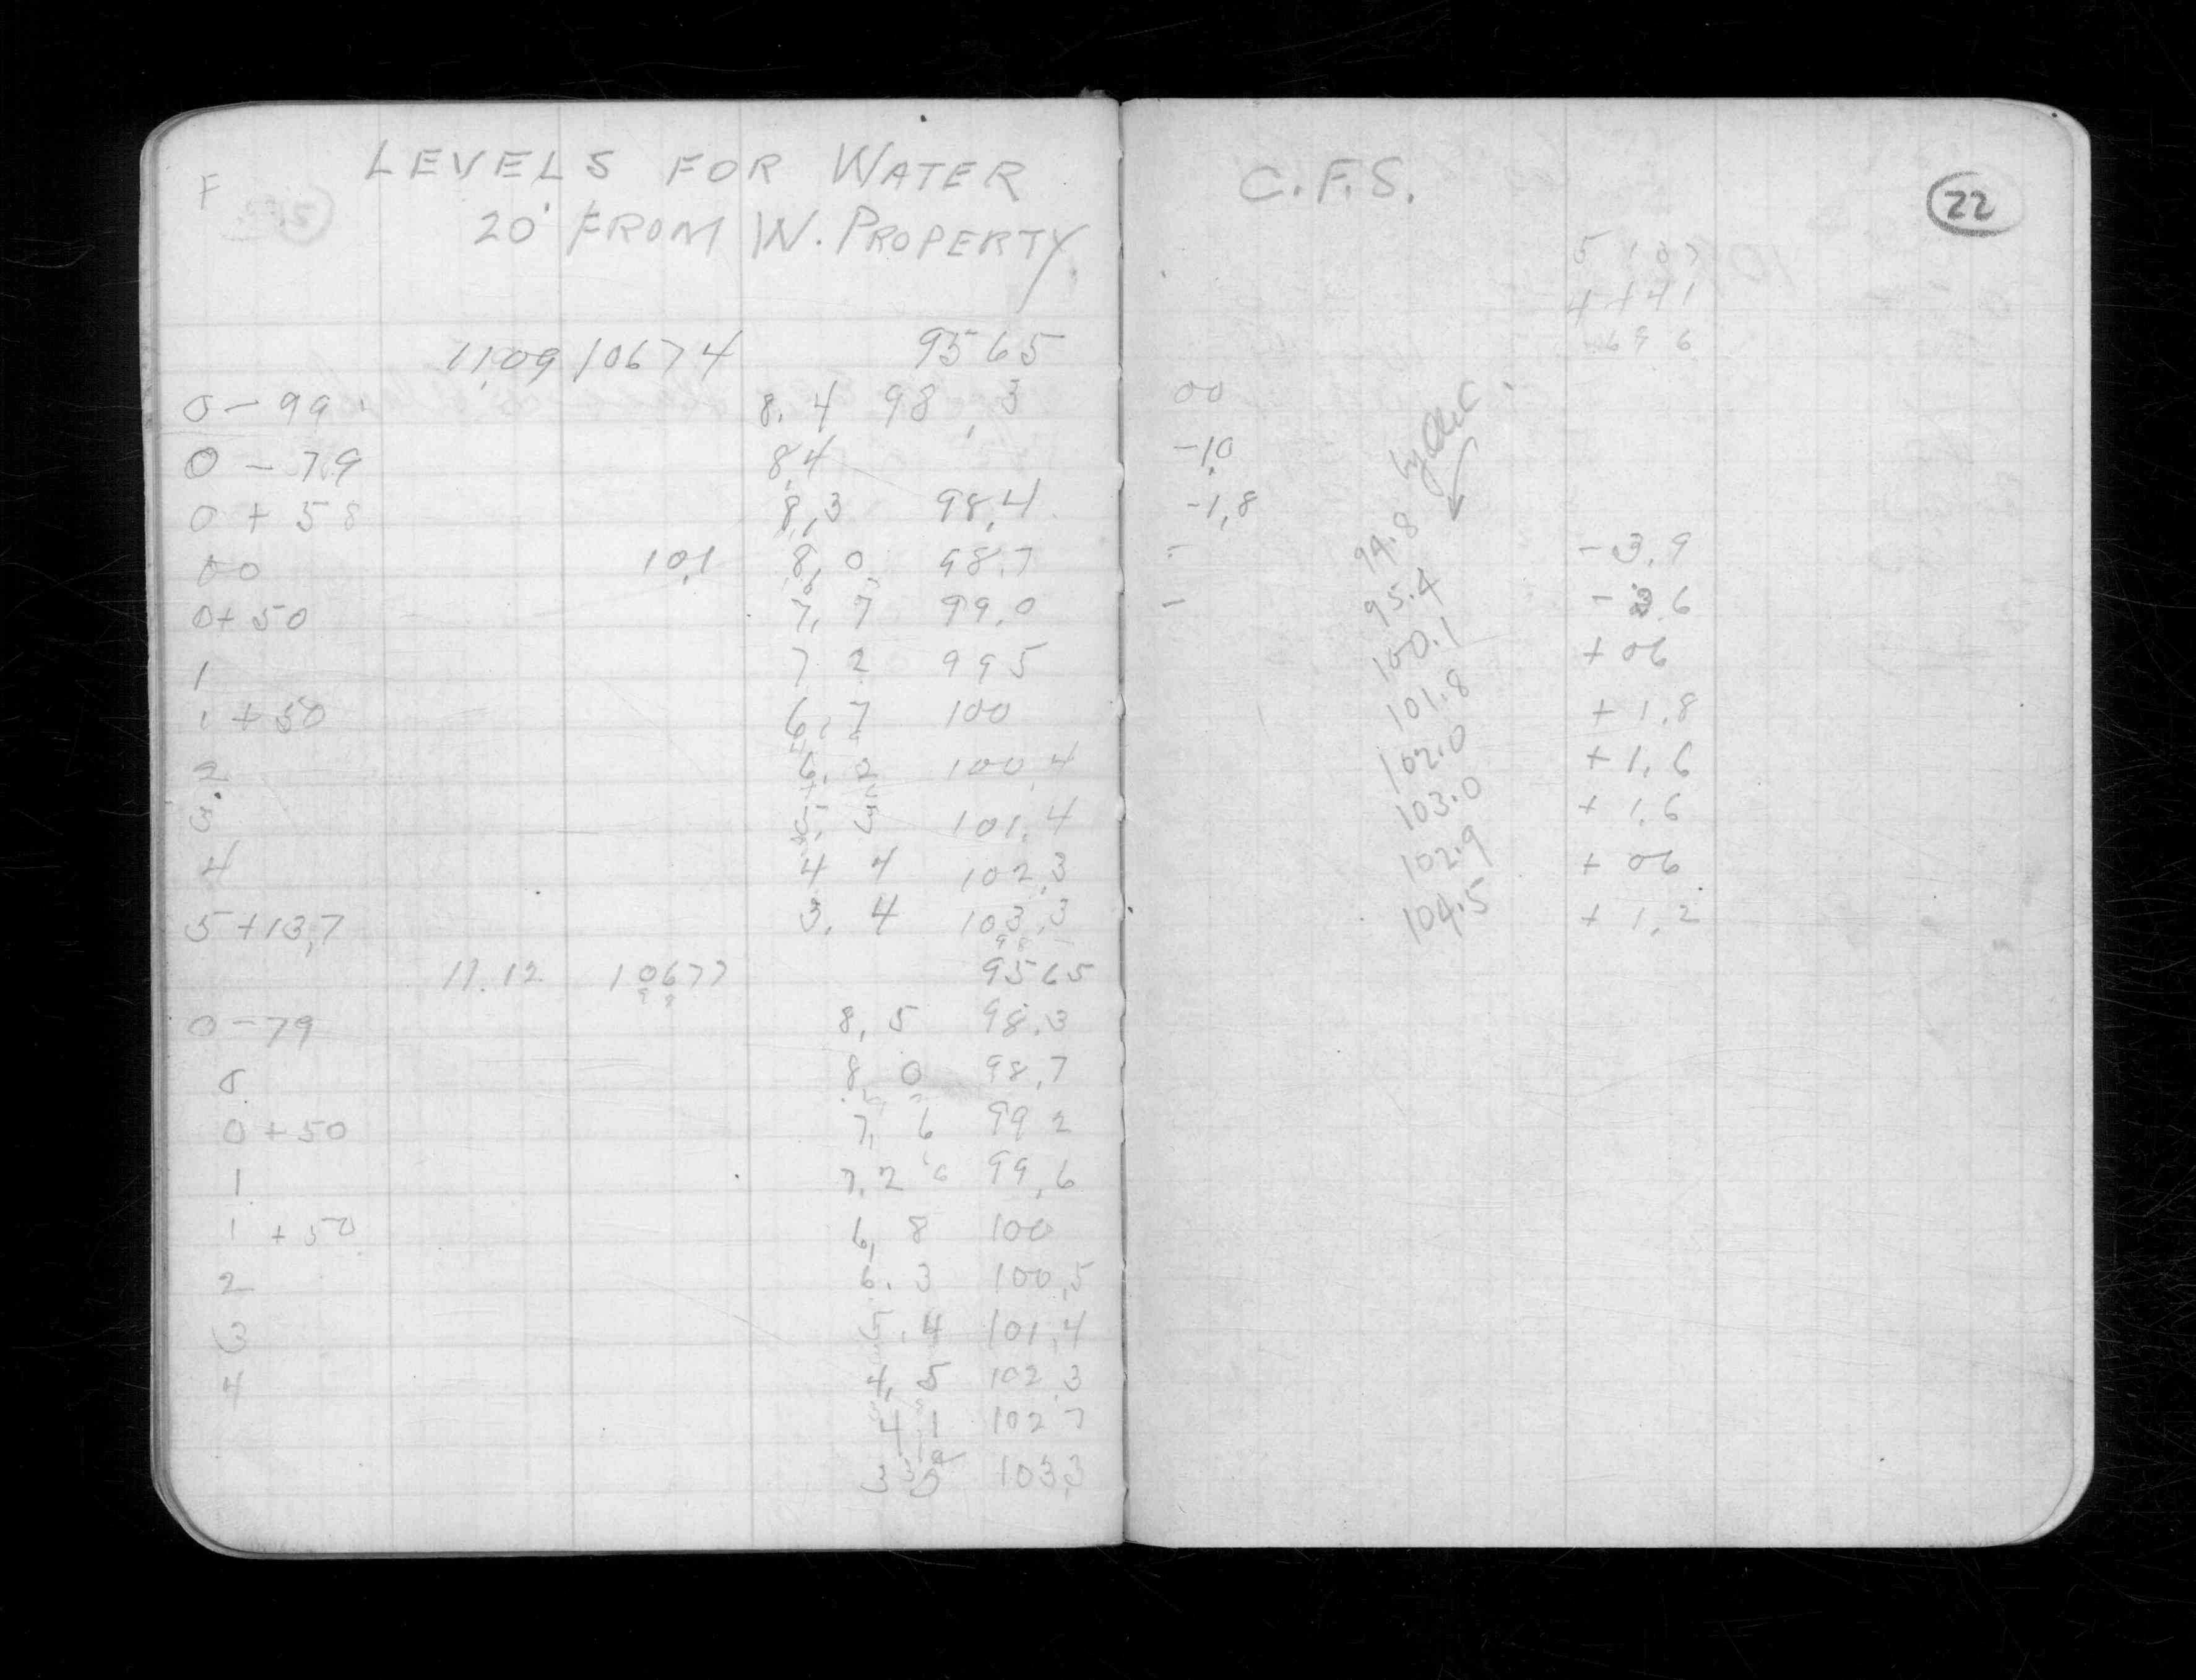 F LEVELS FOR WATER
20' FROM W. PROPERTY
11.09 10674 9565
0 - 99 8.4 98.3
0 - 79 8.4
0 + 58 8.3 98.4
00 10.1 8.0 98.7
0+50 7.7 99.0
1 7 2 995
1 + 50 6.7 100
2 6.2 100.4
3 5.3 101.4
4 4 4 102.3
5+13.7 3.4 103.3
11.12 10677 9565
0-79 8.5 98.3
0 8 0 98.7
0+50 7.6 99 2
1 7.2 99.6
1 + 50 6.8 100
2 6.3 100.5
3 5.4 101.4
4 4.5 102.3
4 1 102 7
3 103.3
C.F.S. 22
5 107
4+41
696
00
-1.0
-1.8
99.8 -3.9
95.4 -3.6
100.1 +06
101.8 +1.8
102.0 +1.6
103.0 +1.6
102.9 +06
104.5 +1.2